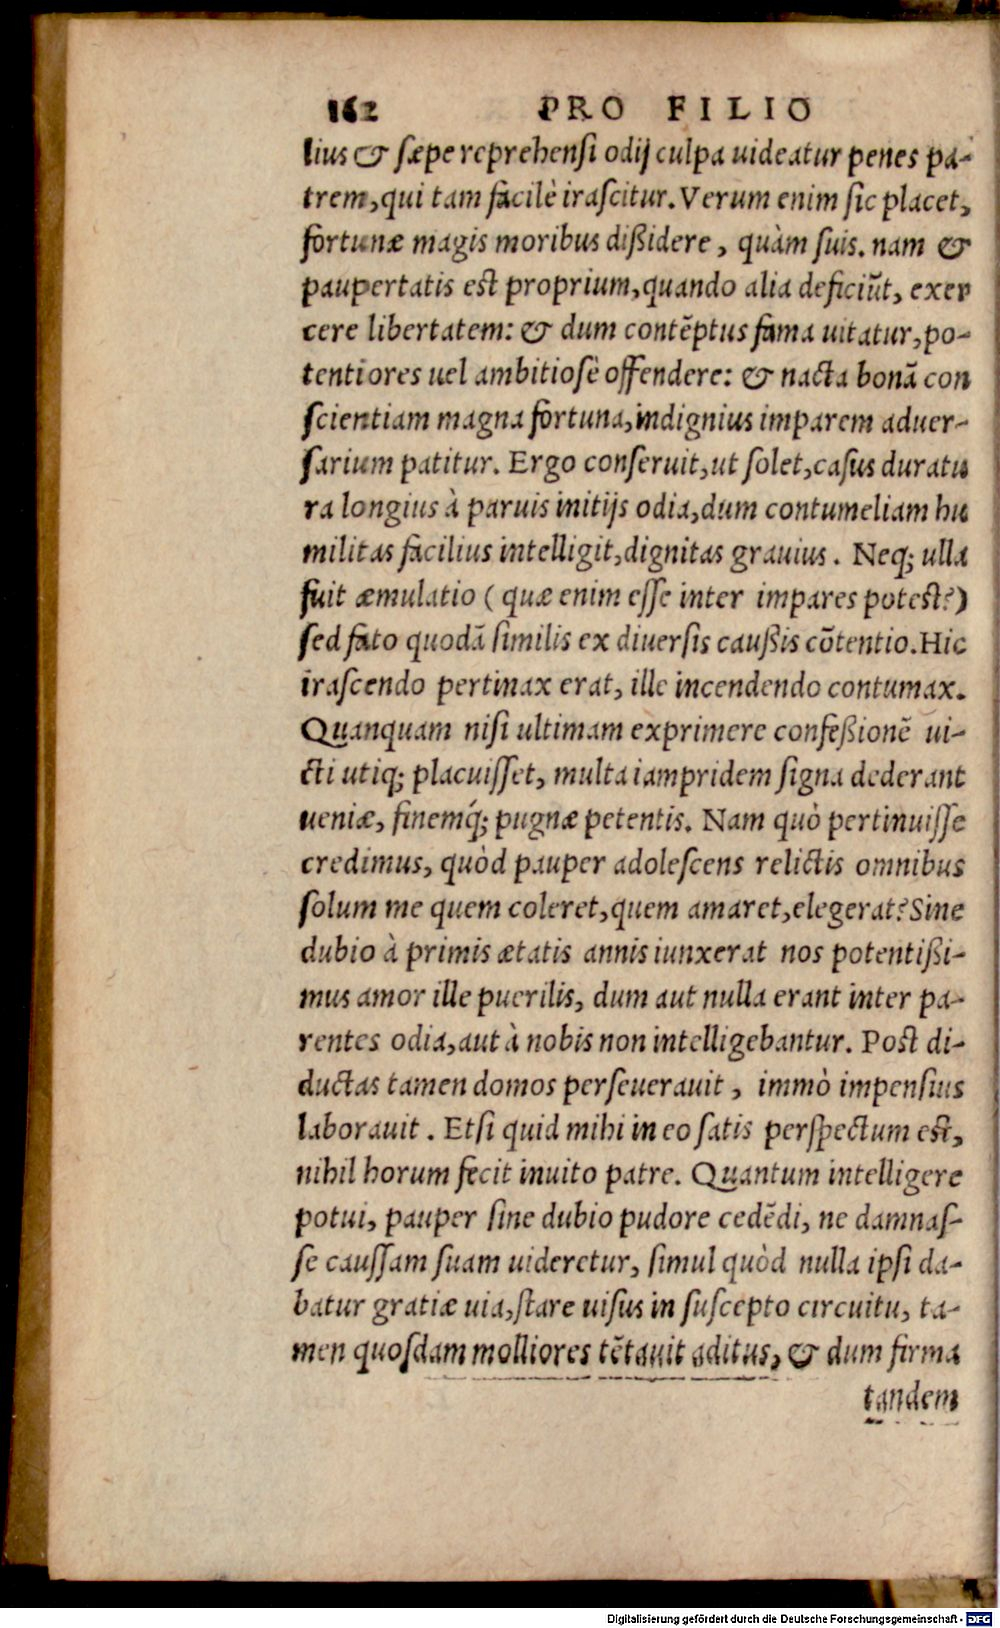 162 PRO FILIO
lius & sæpe reprehensi odij culpa uideatur penes pa-
trem, qui tam facilè irascitur. Verum enim sic placet,
fortunæ magis moribus dißidere, quàm suis. nam &
paupertatis est proprium, quando alia deficiũt, exer
cere libertatem: & dum contẽptus fama uitatur, po-
tentiores uel ambitiosè offendere: & nacta bonã con
scientiam magna fortuna, indignius imparem aduer-
sarium patitur. Ergo conseruit, ut solet, casus duratu
ra longius à paruis initijs odia, dum contumeliam hu
militas facilius intelligit, dignitas grauius. Neq; ulla
fuit æmulatio (quæ enim esse inter impares potest?)
sed fato quodã similis ex diuersis caußis cõtentio. Hic
irascendo pertinax erat, ille incendendo contumax.
Quanquam nisi ultimam exprimere confeßionẽ ui-
cti utiq; placuisset, multa iampridem signa dederant
ueniæ, finemq́; pugnæ petentis. Nam quò pertinuisse
credimus, quòd pauper adolescens relictis omnibus
solum me quem coleret, quem amaret, elegerat? Sine
dubio à primis ætatis annis iunxerat nos potentißi-
mus amor ille puerilis, dum aut nulla erant inter pa-
rentes odia, aut à nobis non intelligebantur. Post di-
ductas tamen domos perseuerauit, immò impensius
laborauit. Etsi quid mihi in eo satis perspectum est,
nihil horum fecit inuito patre. Quantum intelligere
potui, pauper sine dubio pudore cedẽdi, ne damnas-
se caussam suam uideretur, simul quòd nulla ipsi da-
batur gratiæ uia, stare uisus in suscepto circuitu, ta-
men quosdam molliores tẽtauit aditus, & dum firma
tandem
Digitalisierung gefördert durch die Deutsche Forschungsgemeinschaft - DFG